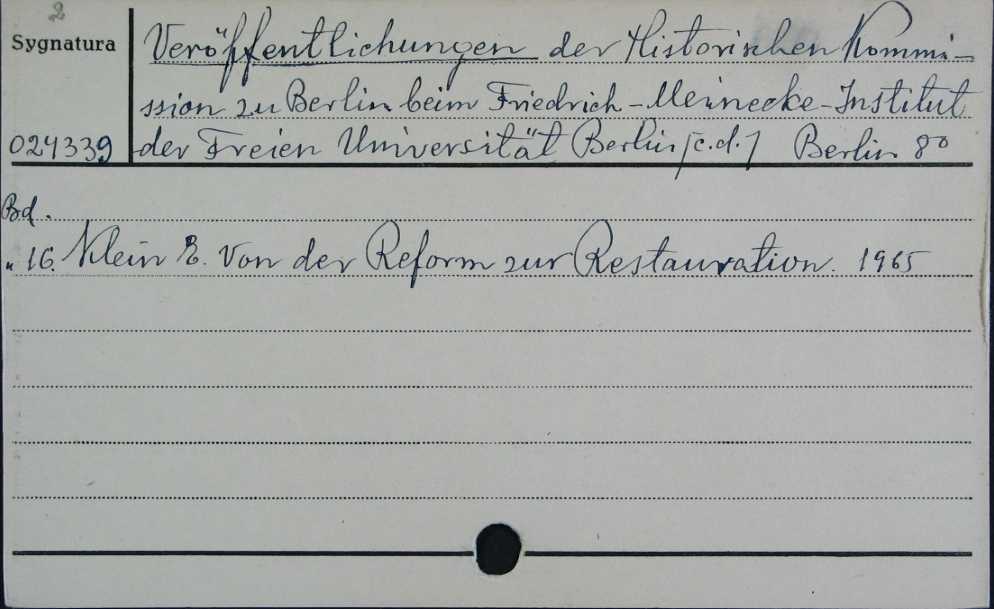 2
Sygnatura
Veröffentlichungen der Historischen Kommi-
ssion zu Berlin beim Friedrich-Meinecke-Institut
024339 der Freien Universität Berlin [c.d.] Berlin 8°
Bd.
" 16. Klein E. Von der Reform zur Restauration. 1965